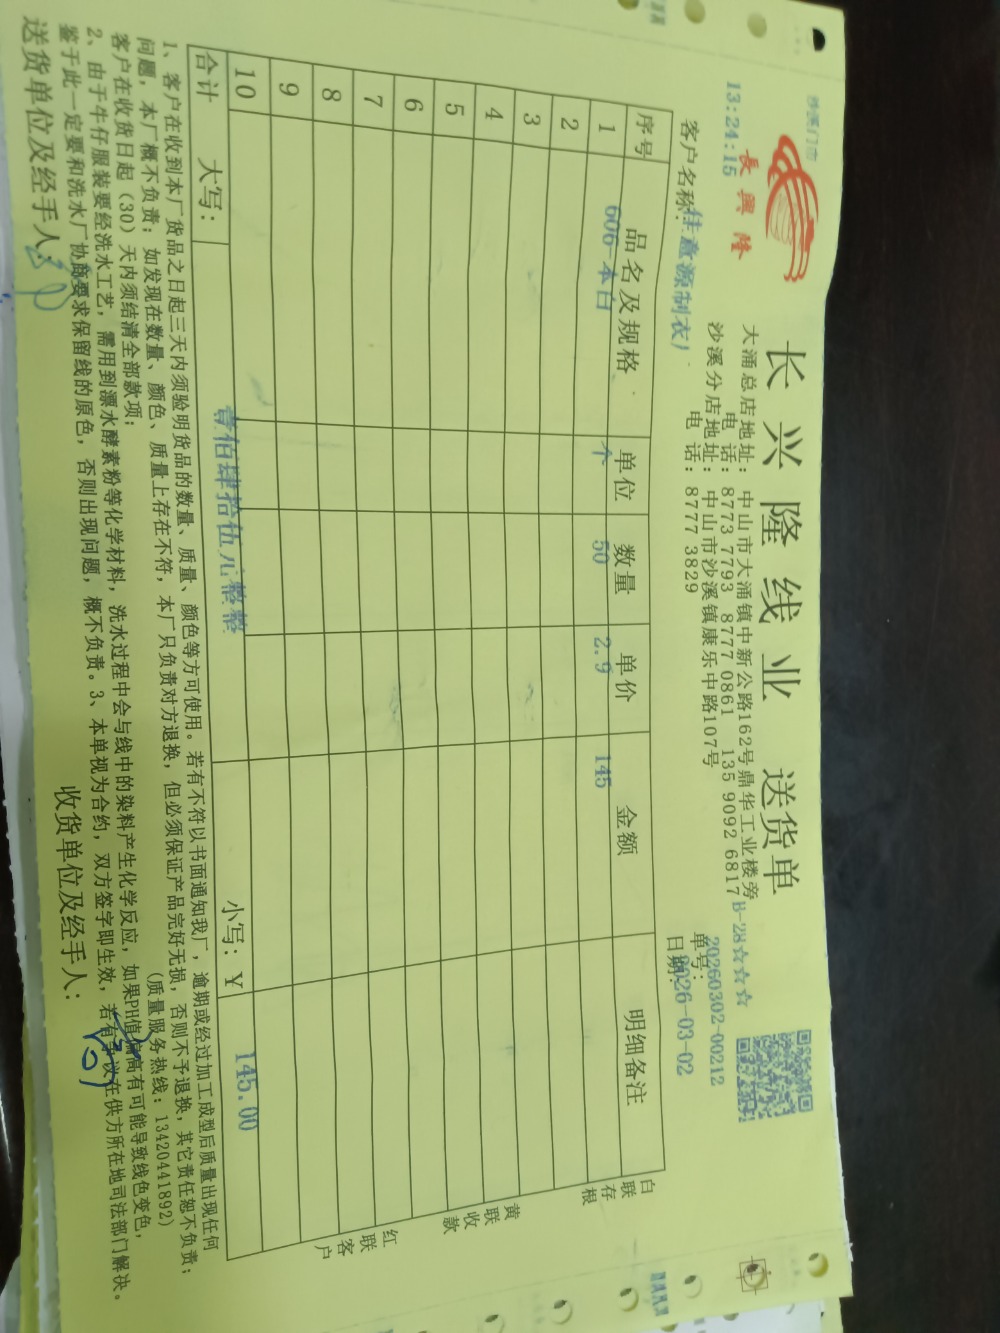 沙溪门市
13:24:15
長興隆
长兴隆线业 送货单
大涌总店地址：中山市大涌镇中新公路162号鼎华工业楼旁
电 话：8773 7793 8777 0861 135 9092 6817
沙溪分店地址：中山市沙溪镇康乐中路107号
电 话：8777 3829
B-28☆☆☆
单号：20260302-00212
客户名称：佳意源制衣)
日期：2026-03-02
序号 品名及规格 单位 数量 单价 金额 明细备注
1 606-本白 个 50 2.9 145
2
3
4
5
6
7
8
9
10
合计 大写：壹佰肆拾伍元整整 小写：￥ 145.00
白联存根
黄联收款
红联客户
1、客户在收到本厂货品之日起三天内须验明货品的数量、质量、颜色等方可使用。若有不符以书面通知我厂，逾期或经过加工成型后质量出现任何
问题，本厂概不负责；如发现在数量、颜色、质量上存在不符，本厂只负责对方退换，但必须保证产品完好无损，否则不予退换，其它责任恕不负责；
客户在收货日起（30）天内须结清全部款项； (质量服务热线：13420441892)
2、由于牛仔服装要经洗水工艺，需用到漂水酵素粉等化学材料，洗水过程中会与线中的染料产生化学反应，如果PH值偏高有可能导致线色变色，
鉴于此一定要和洗水厂协商要求保留线的原色，否则出现问题，概不负责。3、本单视为合约，双方签字即生效，若有争议在供方所在地司法部门解决。
送货单位及经手人： 收货单位及经手人：